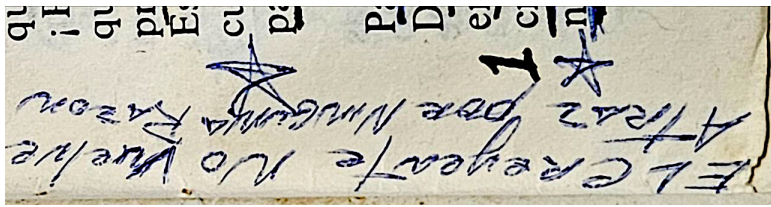 EL CReyente NO Vuelve
ATRAZ POR NINGUNA RAZON
1